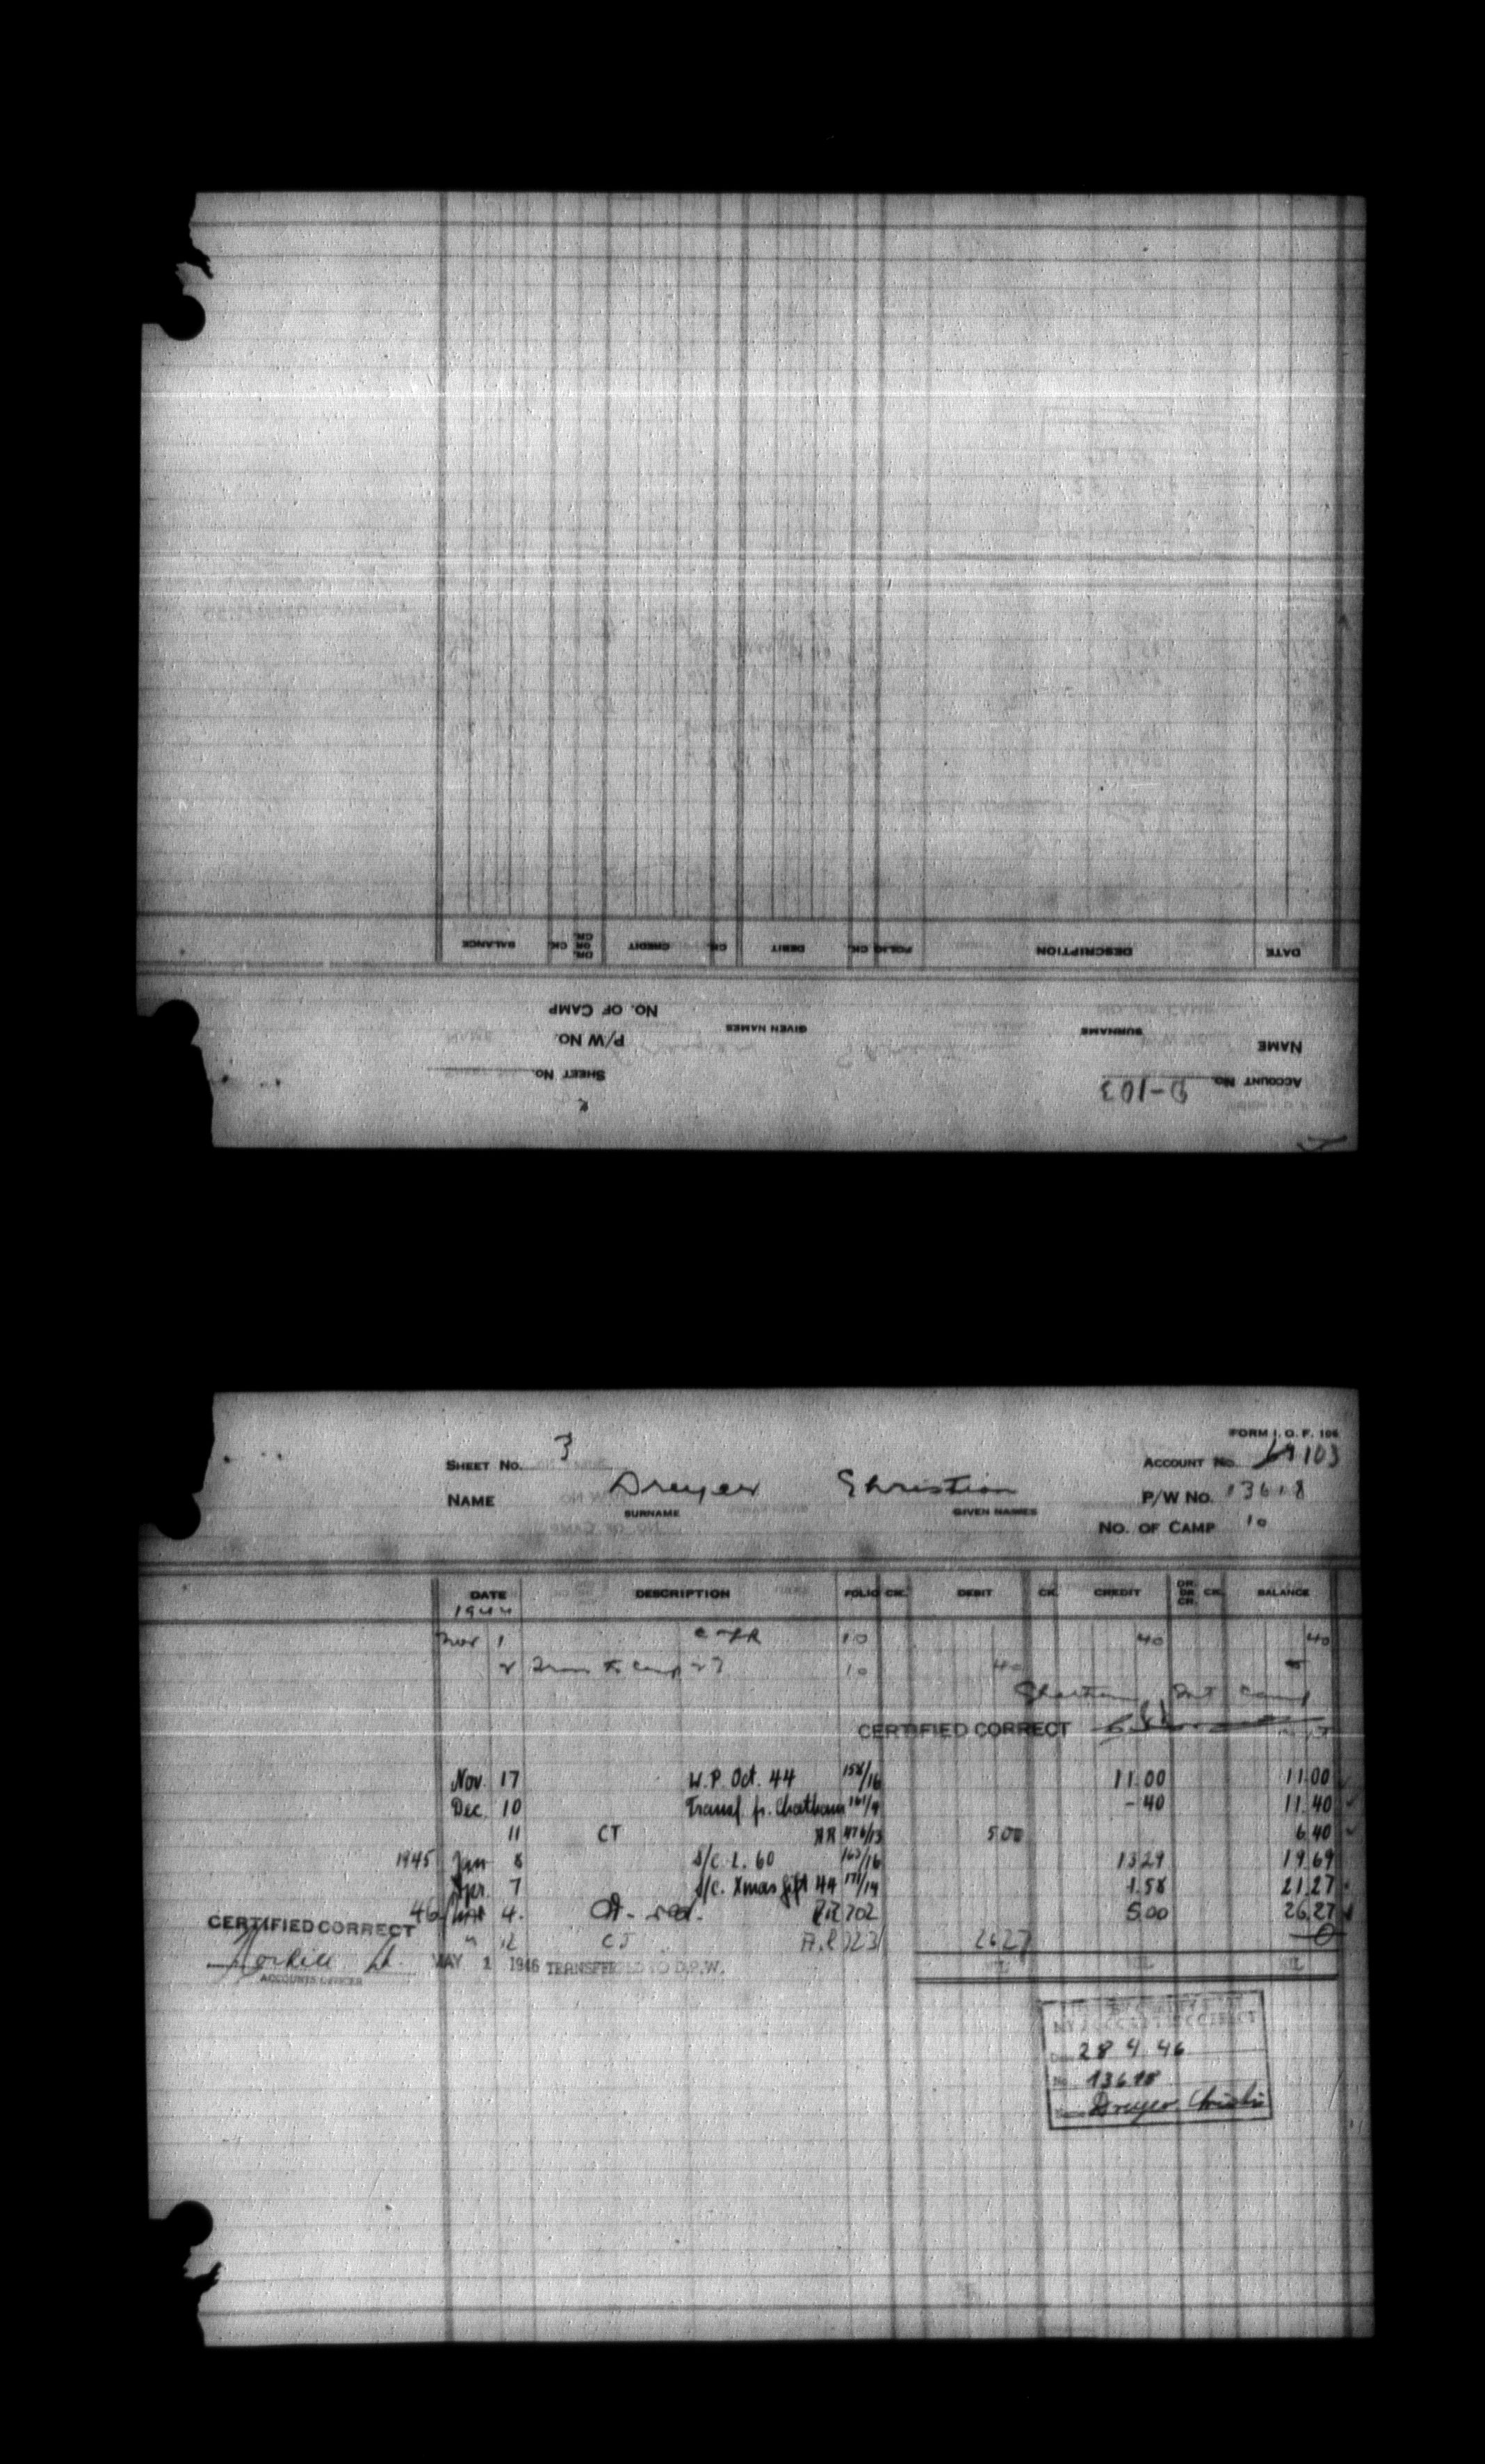 BALANCE CK. DR. OR CR. CREDIT CK. DEBIT CK. FOLIO DESCRIPTION DATE
NO. OF CAMP
GIVEN NAMES SURNAME
P/W No. NAME
SHEET No. ACCOUNT No. D-103
FORM I. O. F. 106
SHEET No. 3 ACCOUNT No. 103
NAME Dreyer Christian P/W No. 13618
SURNAME GIVEN NAMES
NO. OF CAMP 10
DATE DESCRIPTION FOLIO CK. DEBIT CK. CREDIT DR. OR CR. CK. BALANCE
1944
Nov 1 10 40 40
2 Trans to Camp 27 10 40
Camp
CERTIFIED CORRECT
Nov. 17 W.P. Oct. 44 158/16 11.00 11.00
Dec. 10 Transf. fr. Chatham 161/9 - 40 11.40
11 CT RR 476/13 5.00 6.40
1945 Jan 8 S/C L. 60 163/16 13.29 19.69
Apr. 7 S/C. Xmas gift 44 171/19 1.58 21.27
46 4. 702 5.00 26.27
CERTIFIED CORRECT
" 12 CT 26.27 0
MAY 1 1946 TRANSFERRED TO D.P.W. NIL NIL NIL
ACCOUNTS OFFICER
28 4 46
No. 13618
Name Dreyer Christian